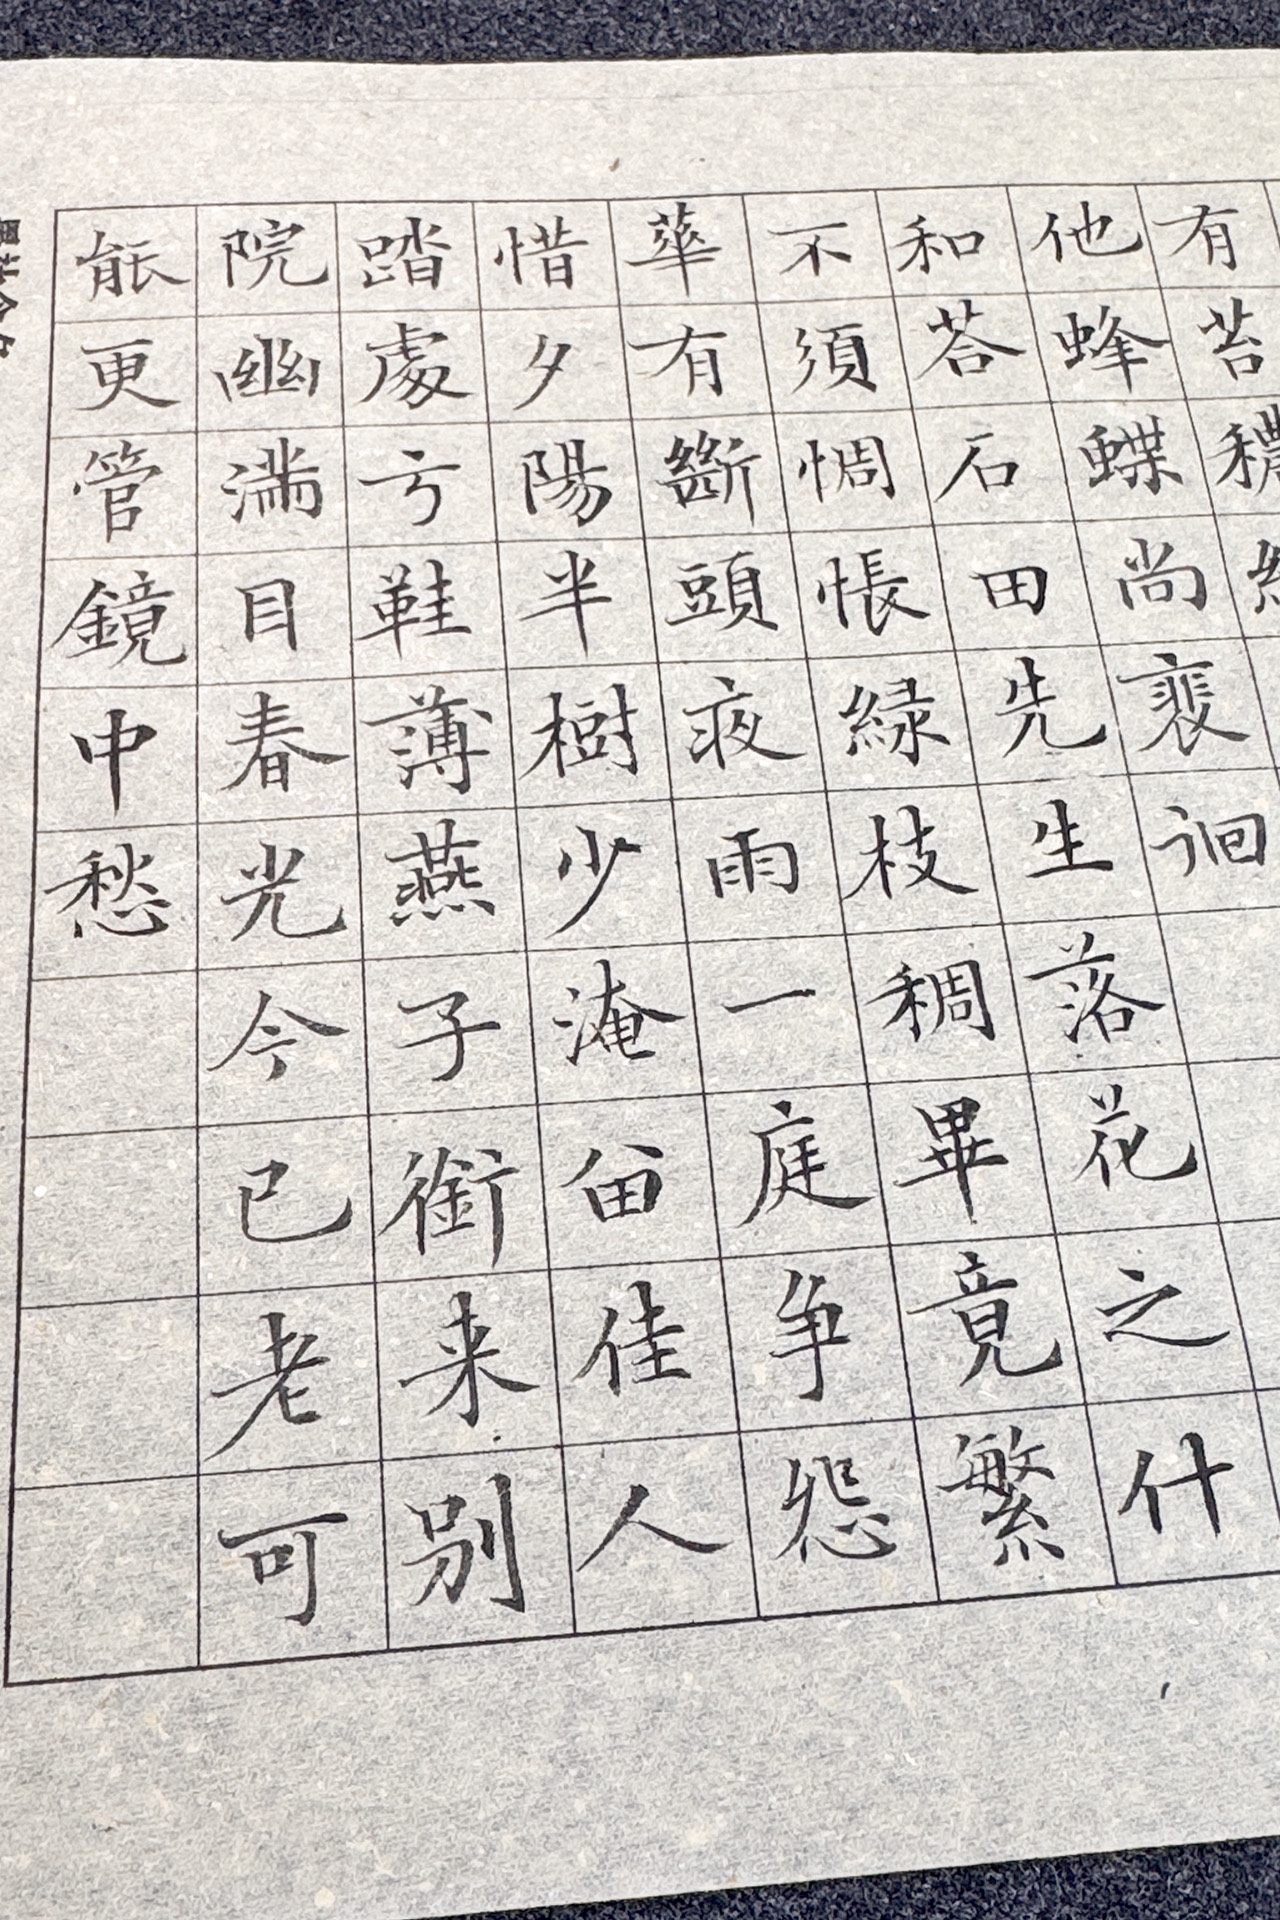 有苔穠
他蜂蝶尚裴徊
和荅石田先生落花之什
不須惆悵緑枝稠畢竟繁
華有斷頭夜雨一庭争怨
惜夕陽半樹少淹留佳人
踏處弓鞋薄燕子銜来别
院幽滿目春光今已老可
能更管鏡中愁